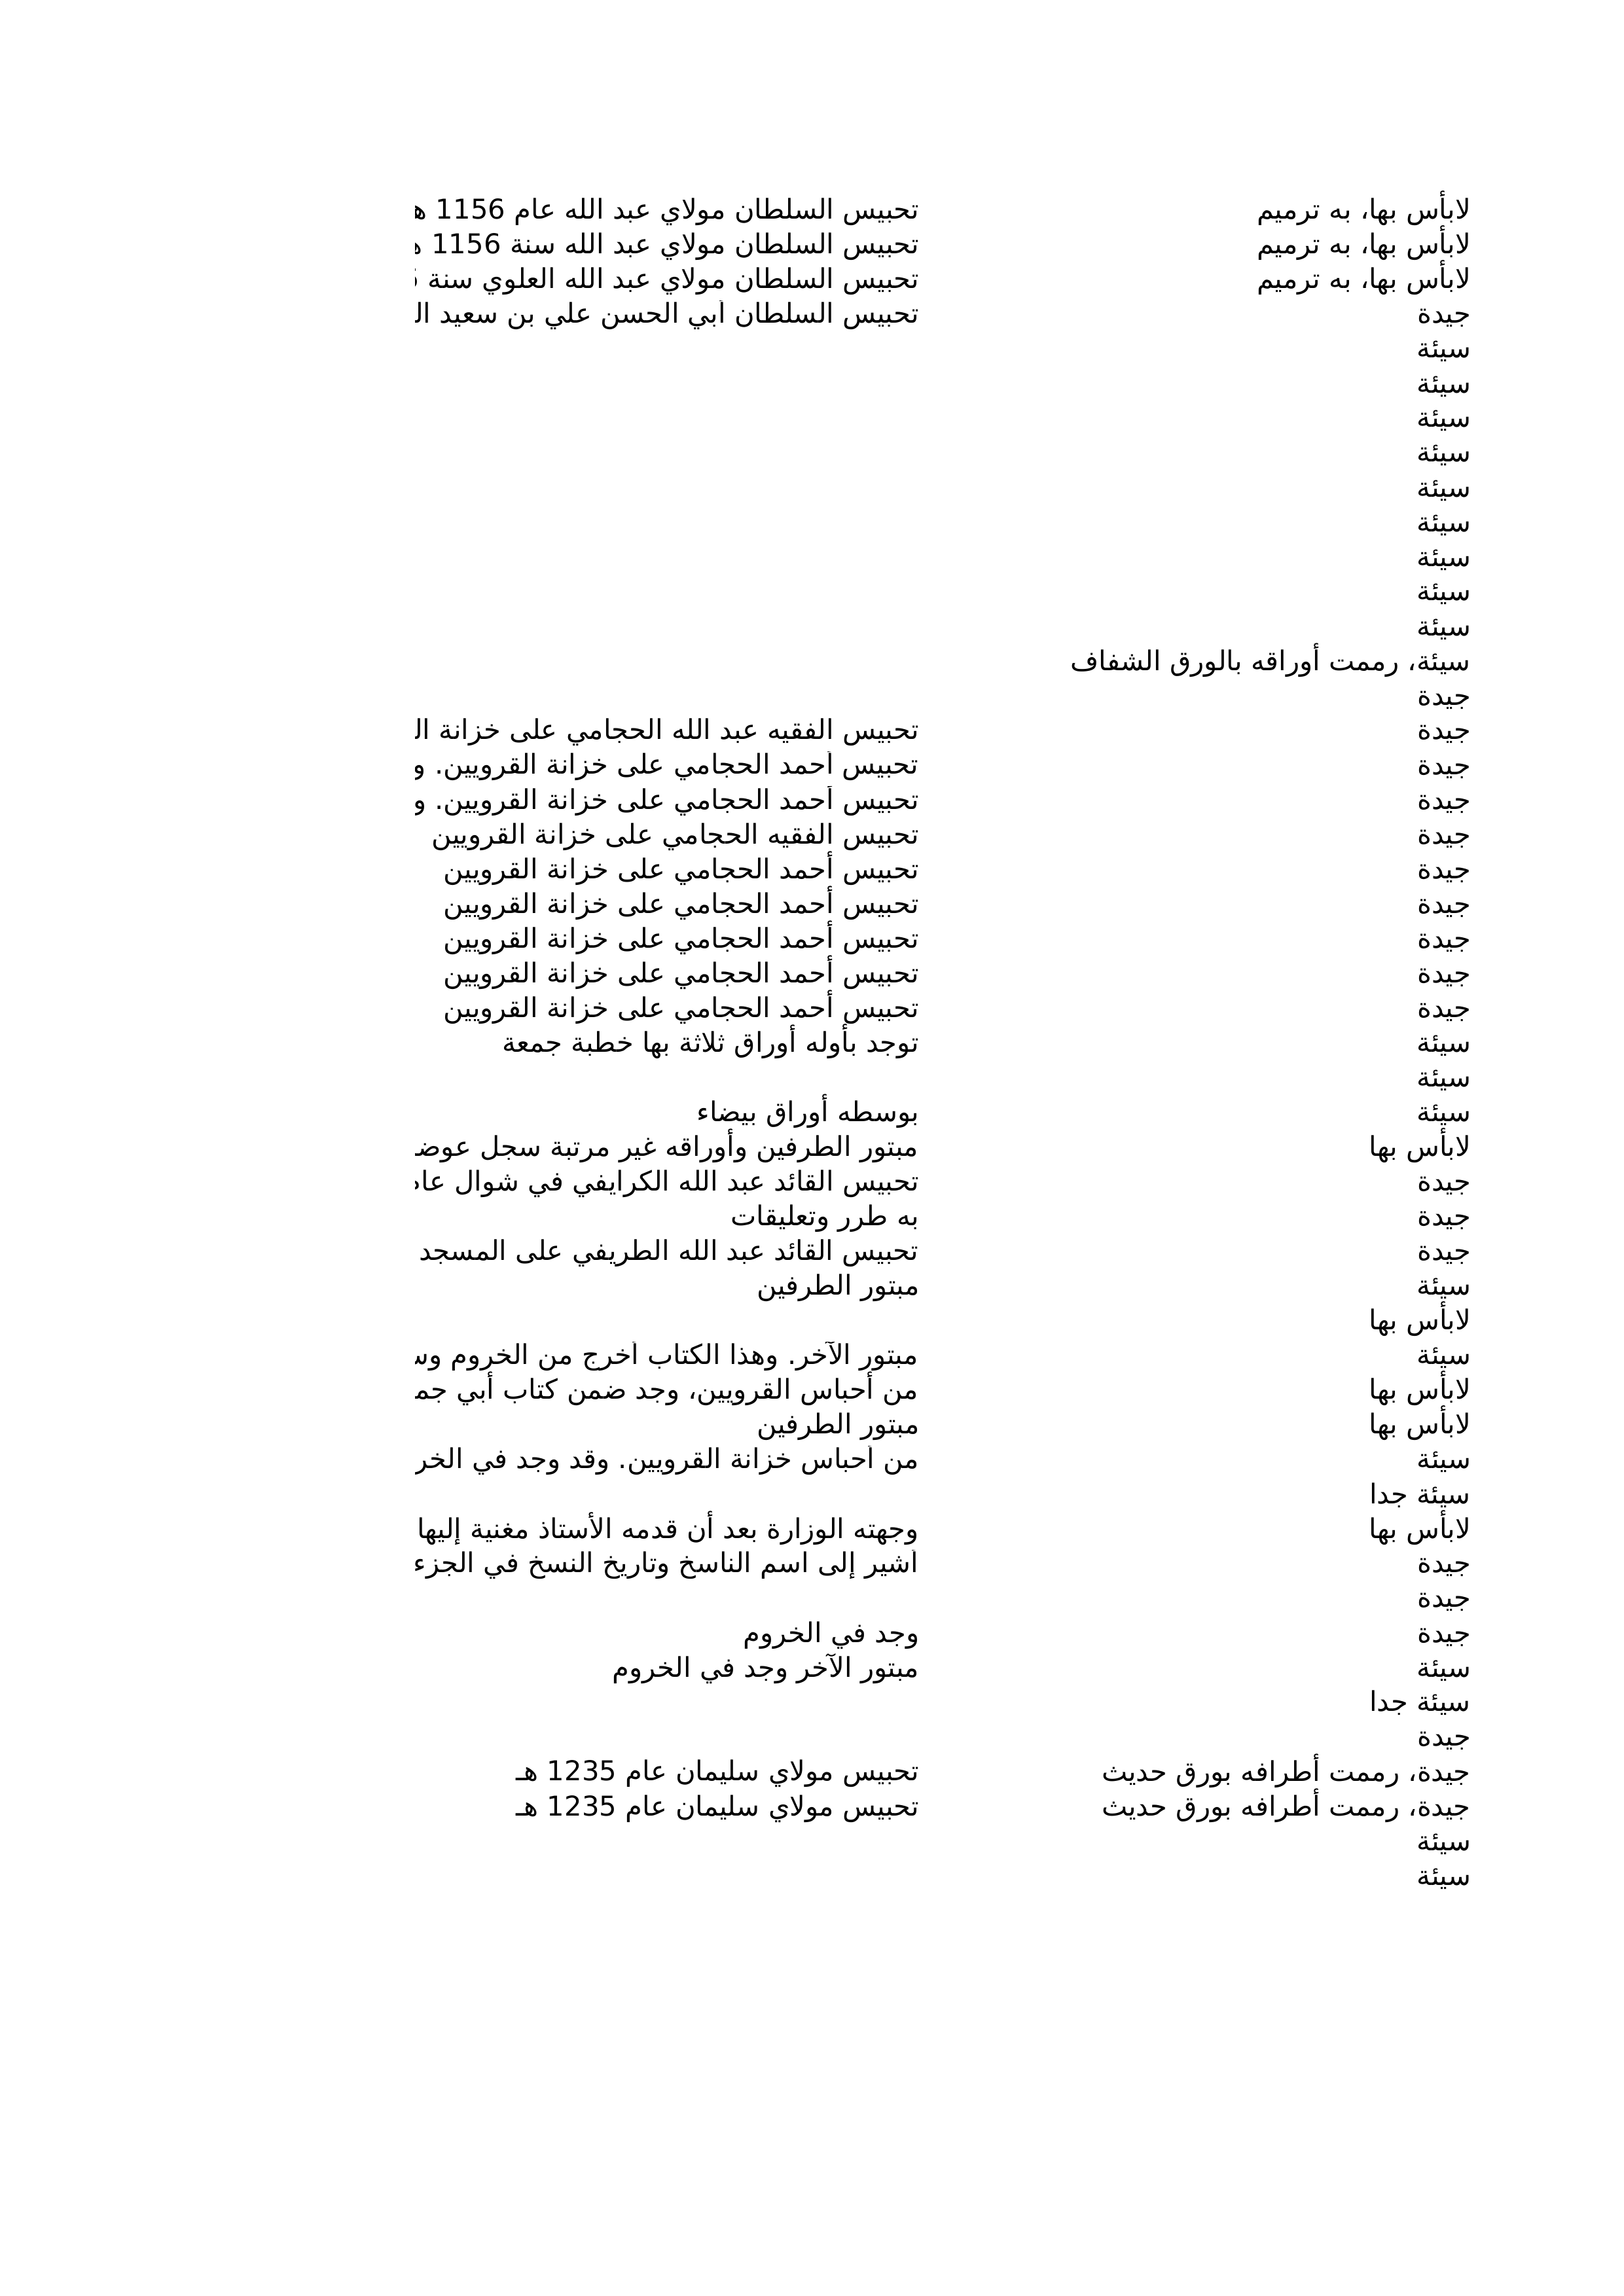 لابأس بها، به ترميم تحبيس السلطان مولاي عبد الله عام 1156 ه
لابأس بها، به ترميم تحبيس السلطان مولاي عبد الله سنة 1156 ه
لابأس بها، به ترميم تحبيس السلطان مولاي عبد الله العلوي سنة
جيدة تحبيس السلطان أبي الحسن علي بن سعيد
سيئة
سيئة
سيئة
سيئة
سيئة
سيئة
سيئة
سيئة
سيئة
سيئة، رممت أوراقه بالورق الشفاف
جيدة
جيدة تحبيس الفقيه عبد الله الحجامي على خزانة
جيدة تحبيس أحمد الحجامي على خزانة القرويين. و
جيدة تحبيس أحمد الحجامي على خزانة القرويين. و
جيدة تحبيس الفقيه الحجامي على خزانة القرويين
جيدة تحبيس أحمد الحجامي على خزانة القرويين
جيدة تحبيس أحمد الحجامي على خزانة القرويين
جيدة تحبيس أحمد الحجامي على خزانة القرويين
جيدة تحبيس أحمد الحجامي على خزانة القرويين
جيدة تحبيس أحمد الحجامي على خزانة القرويين
سيئة توجد بأوله أوراق ثلاثة بها خطبة جمعة
سيئة
سيئة بوسطه أوراق بيضاء
لابأس بها مبتور الطرفين وأوراقه غير مرتبة سجل
جيدة تحبيس القائد عبد الله الكرايفي في شوال
جيدة به طرر وتعليقات
جيدة تحبيس القائد عبد الله الطريفي على المسجد
سيئة مبتور الطرفين
لابأس بها
سيئة مبتور الآخر. وهذا الكتاب أخرج من الخروم
لابأس بها من أحباس القرويين، وجد ضمن كتاب أبي
لابأس بها مبتور الطرفين
سيئة من أحباس خزانة القرويين. وقد وجد في
سيئة جدا
لابأس بها وجهته الوزارة بعد أن قدمه الأستاذ مغنية إليها
جيدة أشير إلى اسم الناسخ وتاريخ النسخ في الجزء
جيدة
جيدة وجد في الخروم
سيئة مبتور الآخر وجد في الخروم
سيئة جدا
جيدة
جيدة، رممت أطرافه بورق حديث تحبيس مولاي سليمان عام 1235 هـ
جيدة، رممت أطرافه بورق حديث تحبيس مولاي سليمان عام 1235 هـ
سيئة
سيئة